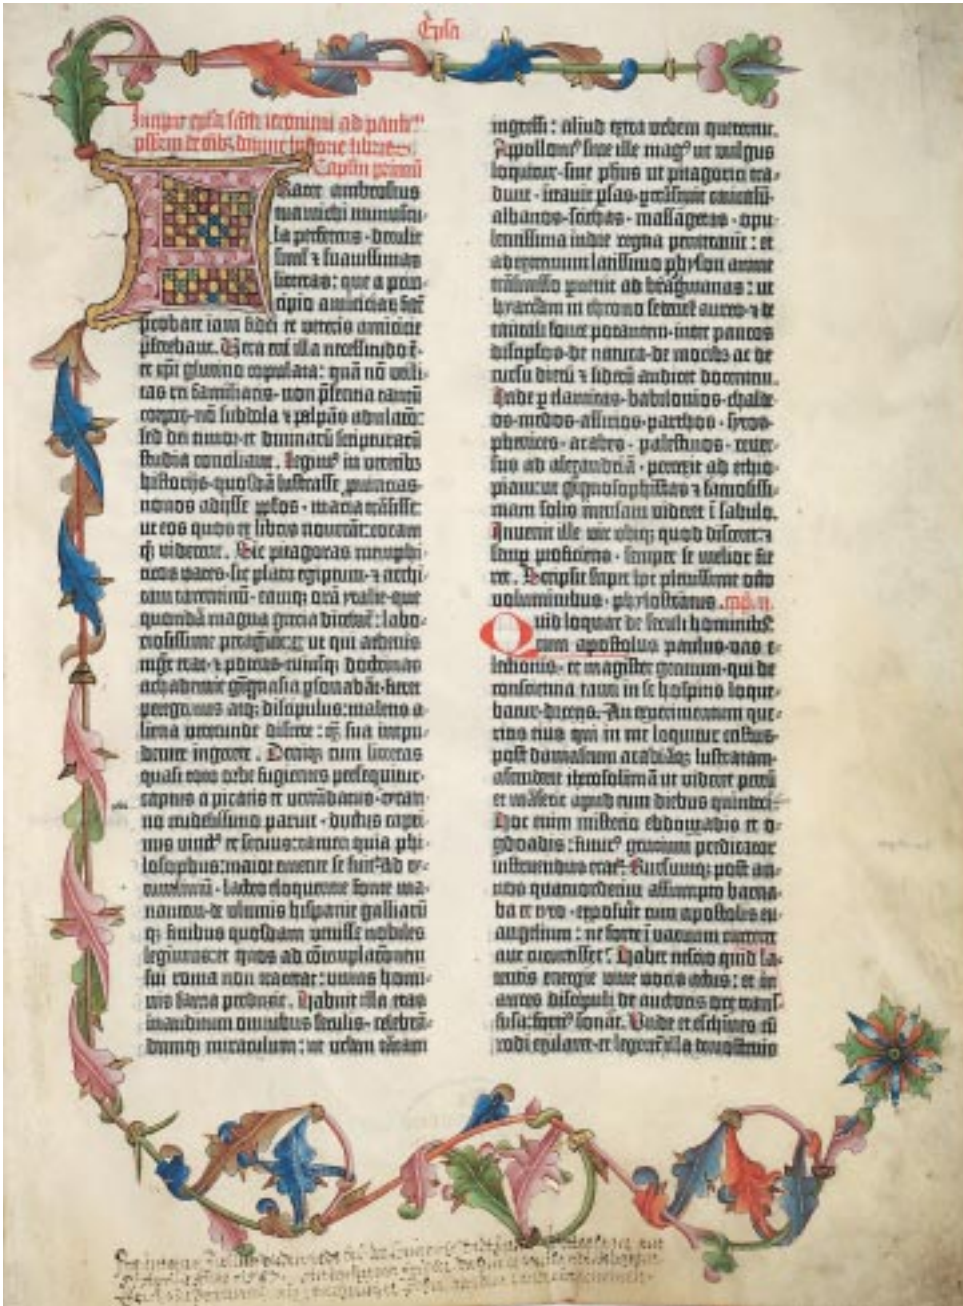 Epla
Incipit epla sancti ieronimi ad paulinū
psbiterū de oībz diuine historie libris
Caplm primū
Frater ambrosius
tua michi munuscu-
la perferens · detulit
simul ⁊ suauissimas
litteras: que a prin-
cipio amiciciaꝝ fidē
probate iam fidei et veteris amicicie
p̄ferebant. Vera enī illa necessitudo ē ·
et xp̄i glutino copulata: quā nō vtili-
tas rei familiaris · non p̄sentia tantū
corpoꝝ · nō subdola ⁊ palpās adulatō:
sed dei timor · et diuinarū scripturarū
studia conciliant. Legimꝰ in veteribꝫ
historijs · quosdā lustrasse ꝓuincias ·
nouos adijsse pplos · maria trāsisse:
ut eos quos ex libris nouerāt: coram
qꝫ viderent. Sic pitagoras memphi-
ticos vates · sic plato egiptum · ⁊ archi-
tam tarentinū · eamqꝫ orā ytalie · que
quondā magna grecia dicebat̄: labo-
riosissime peragrauit: ut qui athenis
mgr̄ erat · ⁊ potens · cuiusqꝫ doctrinas
achademie gignasia ꝑsonabāt · fieret
peregrinus atqꝫ discipulus: malens a-
liena verecunde discere: qꝫ sua impu-
denter ingerere. Deniqꝫ cum litteras
quasi toto orbe fugientes persequitur ·
captus a piratis et venūdatus · tyran-
no crudelissimo paruit · ductus capti-
uus vinctꝰ et seruus: tamen quia phi-
losophus: maior emente se fuit. Ad ty-
tum liuiū · lacteo eloquentie fonte ma-
nantem · de vltimis hispanie galliarū
qꝫ finibus quosdam venisse nobiles
legimus: et quos ad cōtemplatōnem
sui roma non traxerat: vnius homi-
nis fama perduxit. Habuit illa etas
inauditum omnibus seculis · celebrā-
dumqꝫ miraculum: ut vrbem tātam
ingressi: aliud extra vrbem quererent.
Apolloniꝰ siue ille magꝰ ut vulgus
loquitur · siue ph̄us ut pitagorici tra-
dunt · intrauit ꝑsas · ꝑtrāsiuit caucasū
albanos · scithas · massagetas · opu-
lentissima indie regna penetrauit: et
ad extremum latissimo physon amne
trāsmisso peruenit ad bragmanas: ut
hyarcam in throno sedentē aureo · ⁊ de
tantali fonte potantem · inter paucos
discipulos · de natura · de moribꝫ ac de
cursu dierū ⁊ siderū audiret docentem.
Inde ꝑ elamitas · babilonios · chalde-
os · medos · assirios · parthos · syros ·
phenices · arabes · palestinos · reuer-
sus ad alexandriā · perrexit ad ethio-
piam: ut gignosophistas ⁊ famosissi-
mam solis mensam videret ī sabulo.
Inuenit ille vir vbiqꝫ quod disceret: ⁊
semꝑ proficiens · semper se melior fie-
ret. Scripsit super hoc plenissime octo
voluminibus · phylostratus. cap. ii.
Quid loquar de seculi hominibꝫ?
cum apostolus paulus · vas e-
lectionis · et magister gentium · qui de
conscientia tanti in se hospitis loque-
batur · dicens. An experimentum que-
ritis eius qui in me loquitur cristus ·
post damascum arabiāqꝫ lustratam ·
ascenderit iherosolimā ut videret petrū
et māserit apud eum diebus quindeci-
Hoc enim misterio ebdomadis et o-
gdoadis: futurꝰ gentium predicator
instruendus erat. Rursumqꝫ post an-
nos quatuordecim assumpto barna-
ba et tyto · exposuit cum apostolis eu-
angelium: ne forte ī vacuum curreret
aut cucurrisset. Habet nescio quid la-
tentis energie viue vocis actus: et in
aures discipuli de auctoris ore trans-
fusa: fortiꝰ sonat. Vnde et eschines cū
rodi exularet · et legeret̄ illa demostenis